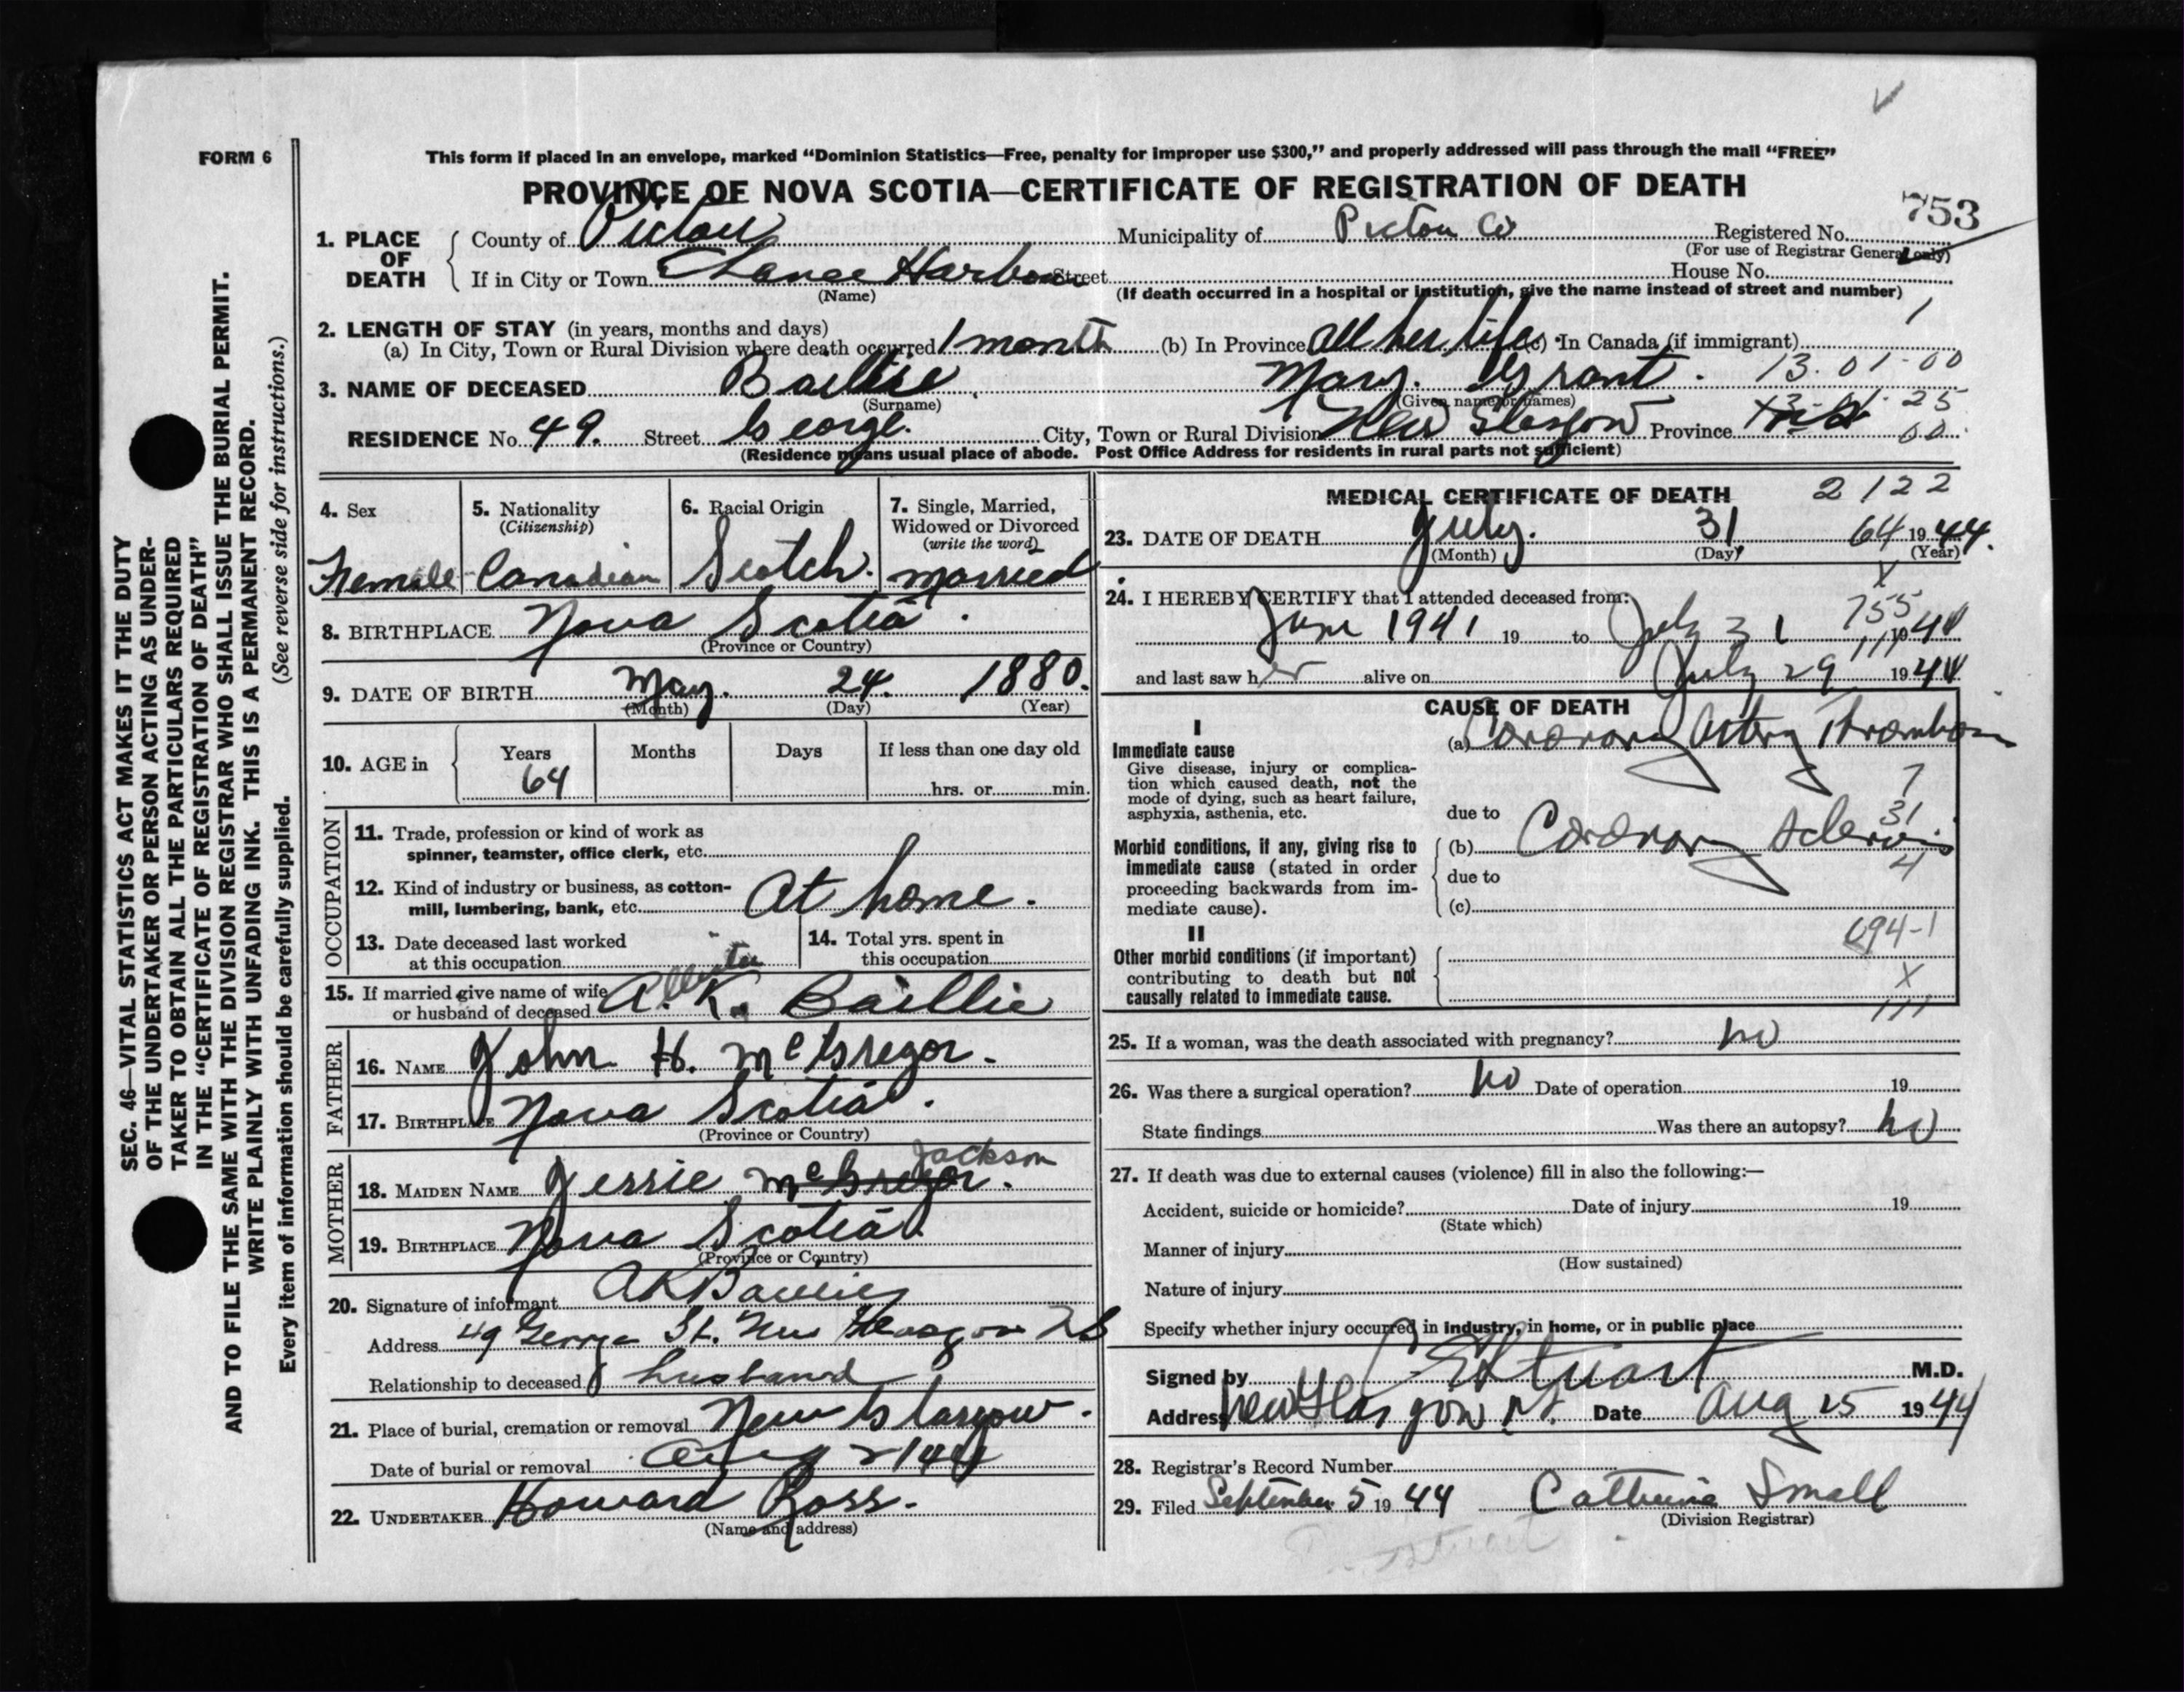 FORM 6
This form if placed in an envelope, marked “Dominion Statistics—Free, penalty for improper use $300,” and properly addressed will pass through the mail “FREE”
PROVINCE OF NOVA SCOTIA—CERTIFICATE OF REGISTRATION OF DEATH
753
1. PLACE OF DEATH
County of Pictou Municipality of Pictou Co Registered No.
(For use of Registrar General only)
If in City or Town Chance Harbour Street House No.
(Name) (If death occurred in a hospital or institution, give the name instead of street and number)
1
2. LENGTH OF STAY (in years, months and days)
(a) In City, Town or Rural Division where death occurred 1 month (b) In Province all her life (c) In Canada (if immigrant)
13.01-00
3. NAME OF DECEASED Baillie Mary. Grant.
(Surname) (Given name or names)
25
RESIDENCE No. 49. Street George. City, Town or Rural Division New Glasgow Province N.S. 00
(Residence means usual place of abode. Post Office Address for residents in rural parts not sufficient)
4. Sex
Female
5. Nationality
(Citizenship)
Canadian
6. Racial Origin
Scotch.
7. Single, Married,
Widowed or Divorced
(write the word)
married
8. BIRTHPLACE Nova Scotia.
(Province or Country)
9. DATE OF BIRTH May. 24. 1880.
(Month) (Day) (Year)
10. AGE in
Years Months Days If less than one day old
64 hrs. or min.
OCCUPATION
11. Trade, profession or kind of work as
spinner, teamster, office clerk, etc.
12. Kind of industry or business, as cotton-
mill, lumbering, bank, etc. At home.
13. Date deceased last worked
at this occupation
14. Total yrs. spent in
this occupation
15. If married give name of wife
or husband of deceased A. K. Baillie
FATHER
16. NAME John H. McGregor.
17. BIRTHPLACE Nova Scotia.
(Province or Country)
MOTHER
Jackson
18. MAIDEN NAME Jessie McGregor.
19. BIRTHPLACE Nova Scotia
(Province or Country)
20. Signature of informant A K Baillie
Address 49 George St. New Glasgow NS
Relationship to deceased husband
21. Place of burial, cremation or removal New Glasgow.
Date of burial or removal Aug 2 144
22. UNDERTAKER Howard Ross.
(Name and address)
MEDICAL CERTIFICATE OF DEATH 2122
23. DATE OF DEATH July. 31 64 1944.
(Month) (Day) (Year)
X
24. I HEREBY CERTIFY that I attended deceased from:
755
June 1941 19 to July 31 1944
111
and last saw her alive on July 29 1944
CAUSE OF DEATH
I
Immediate cause
Give disease, injury or complica-
tion which caused death, not the
mode of dying, such as heart failure,
asphyxia, asthenia, etc.
(a) Coronary Artery Thrombosis
7
due to
31
Morbid conditions, if any, giving rise to
immediate cause (stated in order
proceeding backwards from im-
mediate cause).
(b) Coronary Sclerosis
4
due to
(c)
094-1
II
Other morbid conditions (if important)
contributing to death but not
causally related to immediate cause.
X
111
25. If a woman, was the death associated with pregnancy? no
26. Was there a surgical operation? no Date of operation 19
State findings Was there an autopsy? no
27. If death was due to external causes (violence) fill in also the following:—
Accident, suicide or homicide? Date of injury 19
(State which)
Manner of injury
(How sustained)
Nature of injury
Specify whether injury occurred in industry, in home, or in public place
Signed by Stuart M.D.
Address New Glasgow N.S. Date Aug 25 1944
28. Registrar's Record Number
29. Filed September 5 1944 Catherine Small
(Division Registrar)
Stuart
SEC. 46—VITAL STATISTICS ACT MAKES IT THE DUTY
OF THE UNDERTAKER OR PERSON ACTING AS UNDER-
TAKER TO OBTAIN ALL THE PARTICULARS REQUIRED
IN THE “CERTIFICATE OF REGISTRATION OF DEATH”
AND TO FILE THE SAME WITH THE DIVISION REGISTRAR WHO SHALL ISSUE THE BURIAL PERMIT.
WRITE PLAINLY WITH UNFADING INK. THIS IS A PERMANENT RECORD.
(See reverse side for instructions.)
Every item of information should be carefully supplied.